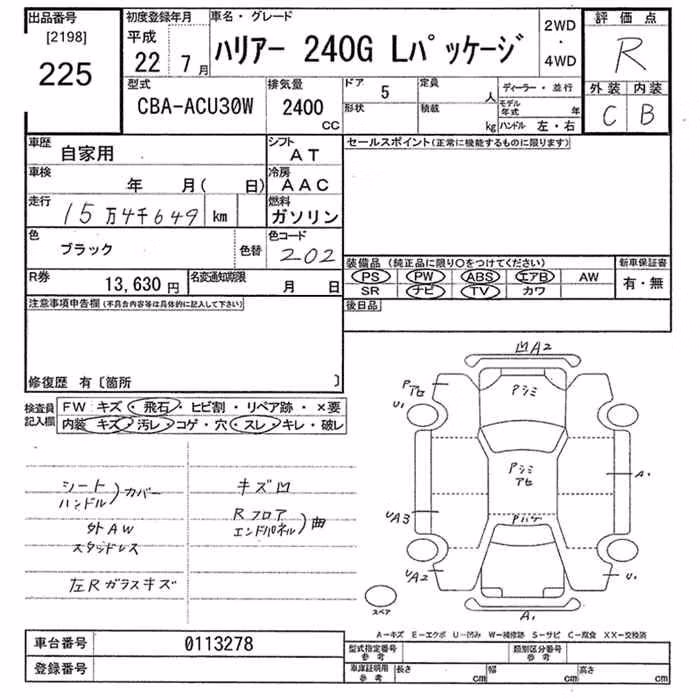 出品番号
[2198]
225
初度登録年月
平成
22 7月
車名・グレード
ハリアー 240G Lパッケージ
2WD
・
4WD
評価点
R
外装 内装
C B
型式
CBA-ACU30W
排気量
2400
CC
ドア 5
形状
定員 人
積載 kg
ディーラー・並行
モデル年式 年
ハンドル 左・右
車歴
自家用
シフト
AT
車検
年 月( 日)
冷房
AAC
走行
15万4千649 km
燃料
ガソリン
色
ブラック
色替
色コード
202
R券
13,630円
名変通知期限
月 日
セールスポイント(正常に機能するものに限ります)
装備品 (純正品に限り○をつけてください)
PS PW ABS エアB AW
SR ナビ TV カワ
新車保証書
有・無
後日品
注意事項申告欄(不具合内容等は具体的に記入して下さい)
修復歴 有〔箇所 〕
検査員記入欄
FW キズ・飛石・ヒビ割・リペア跡・×要
内装 キズ・汚レ・コゲ・穴・スレ・キレ・破レ
シート
ハンドル
)カバー
外AW
スタッドレス
左Rガラスキズ
キズ凹
Rフロア
エンドパネル
)曲
凹A2
Pアセ
Pシミ
U1
Pシミ
アセ
A1
UA3
Pハゲ
UA2
U1
A1
スペア
A-キズ E-エクボ U-凹み W-補修跡 S-サビ C-腐食 XX-交換済
車台番号
0113278
登録番号
型式指定番号
参考
類別区分番号
参考
車庫証明用
参考
長さ cm 幅 cm 高さ cm